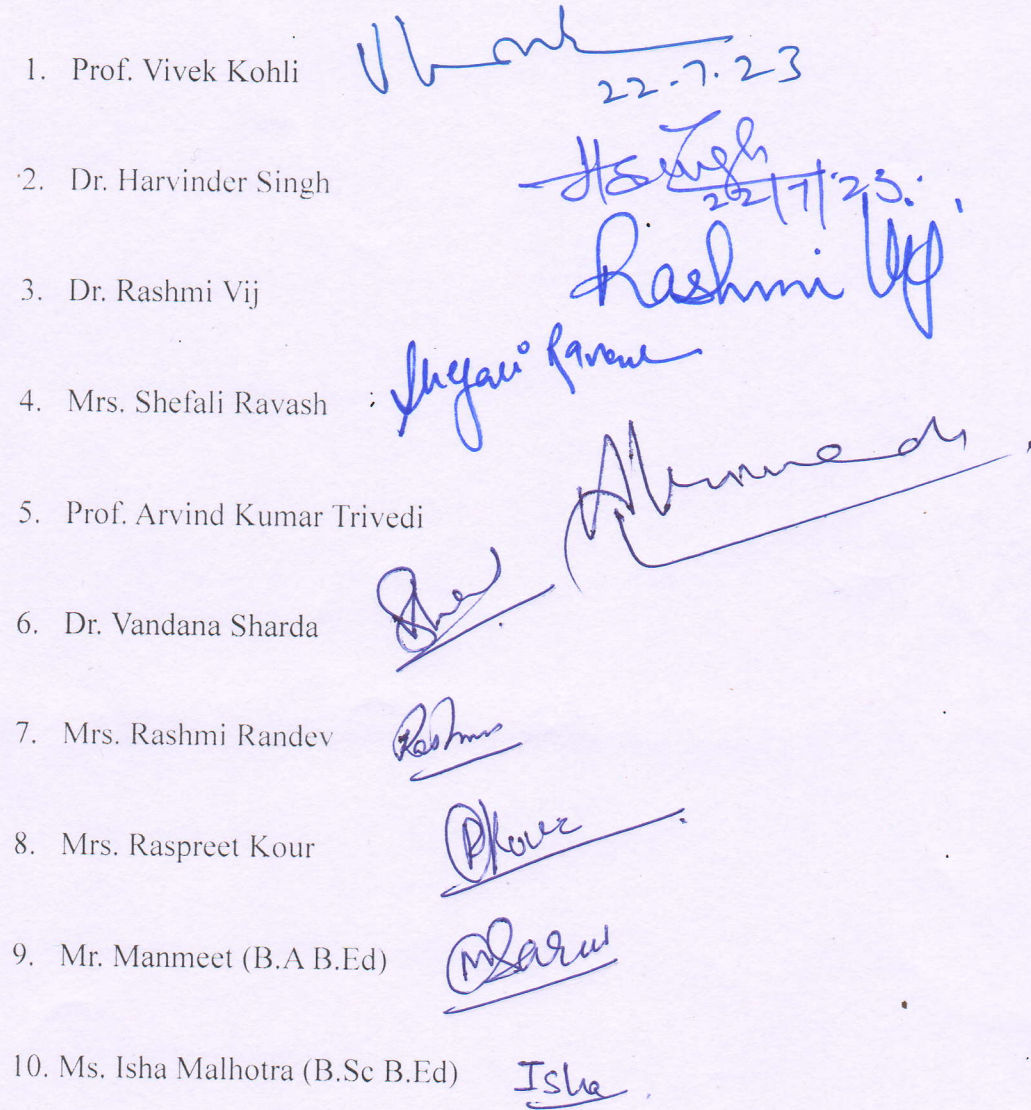 1. Prof. Vivek Kohli
22.7.23
2. Dr. Harvinder Singh HSingh
22/7/23.
3. Dr. Rashmi Vij Rashmi Vij
4. Mrs. Shefali Ravash Shefali Ravash
5. Prof. Arvind Kumar Trivedi
6. Dr. Vandana Sharda
7. Mrs. Rashmi Randev Rashmi
8. Mrs. Raspreet Kour RKour
9. Mr. Manmeet (B.A B.Ed)
10. Ms. Isha Malhotra (B.Sc B.Ed) Isha